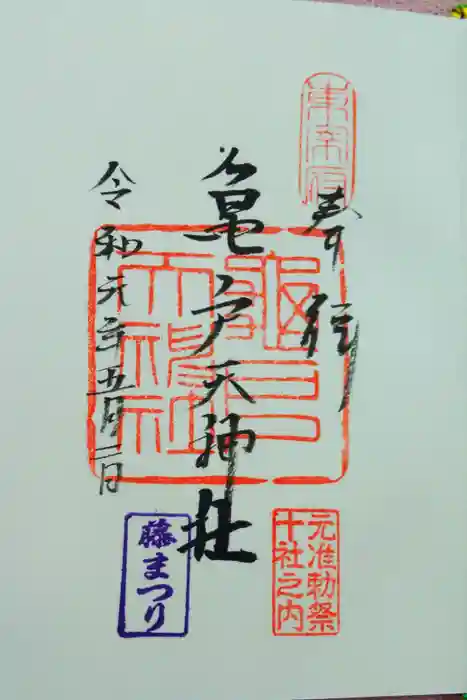 東宰府
奉拝
亀戸天神社
龜戸
天神社
令和元年五月二日
元准勅祭
十社之内
藤まつり